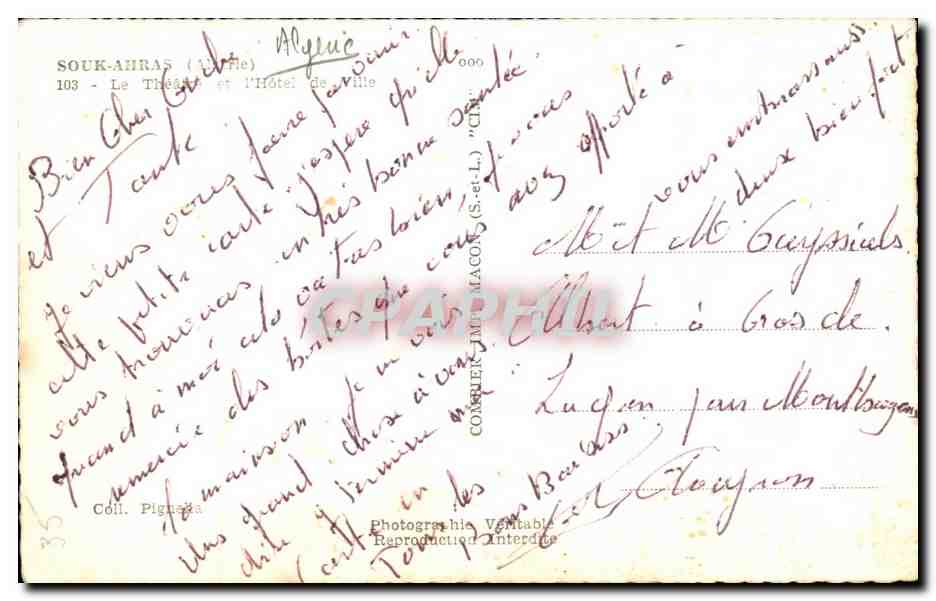 Algerie
SOUK-AHRAS (Algérie)
103 - Le Théâtre et l'Hôtel de Ville
Bien Cher Oncle
et Tante
Je viens vous faire parvenir
cette petite carte j'espere qu'elle
vous trouveras en très bonne santée.
quand à moi cela va très bien, je vous
remercie des boites que vous avez apporté à
la maison je ne vois
plus grand chose à vous
dire je termine ma
carte en vous embrassant
Tous les deux bien fort
Bons Baisers
ooo
COMBIER IMP. MACON (S.-et-L.) "CIM"
Mr et Me
Albert à Gos de
par Montbazens
Aveyron
Coll. Pignetta
Photographie Véritable
Reproduction Interdite
35
CPAPHIL